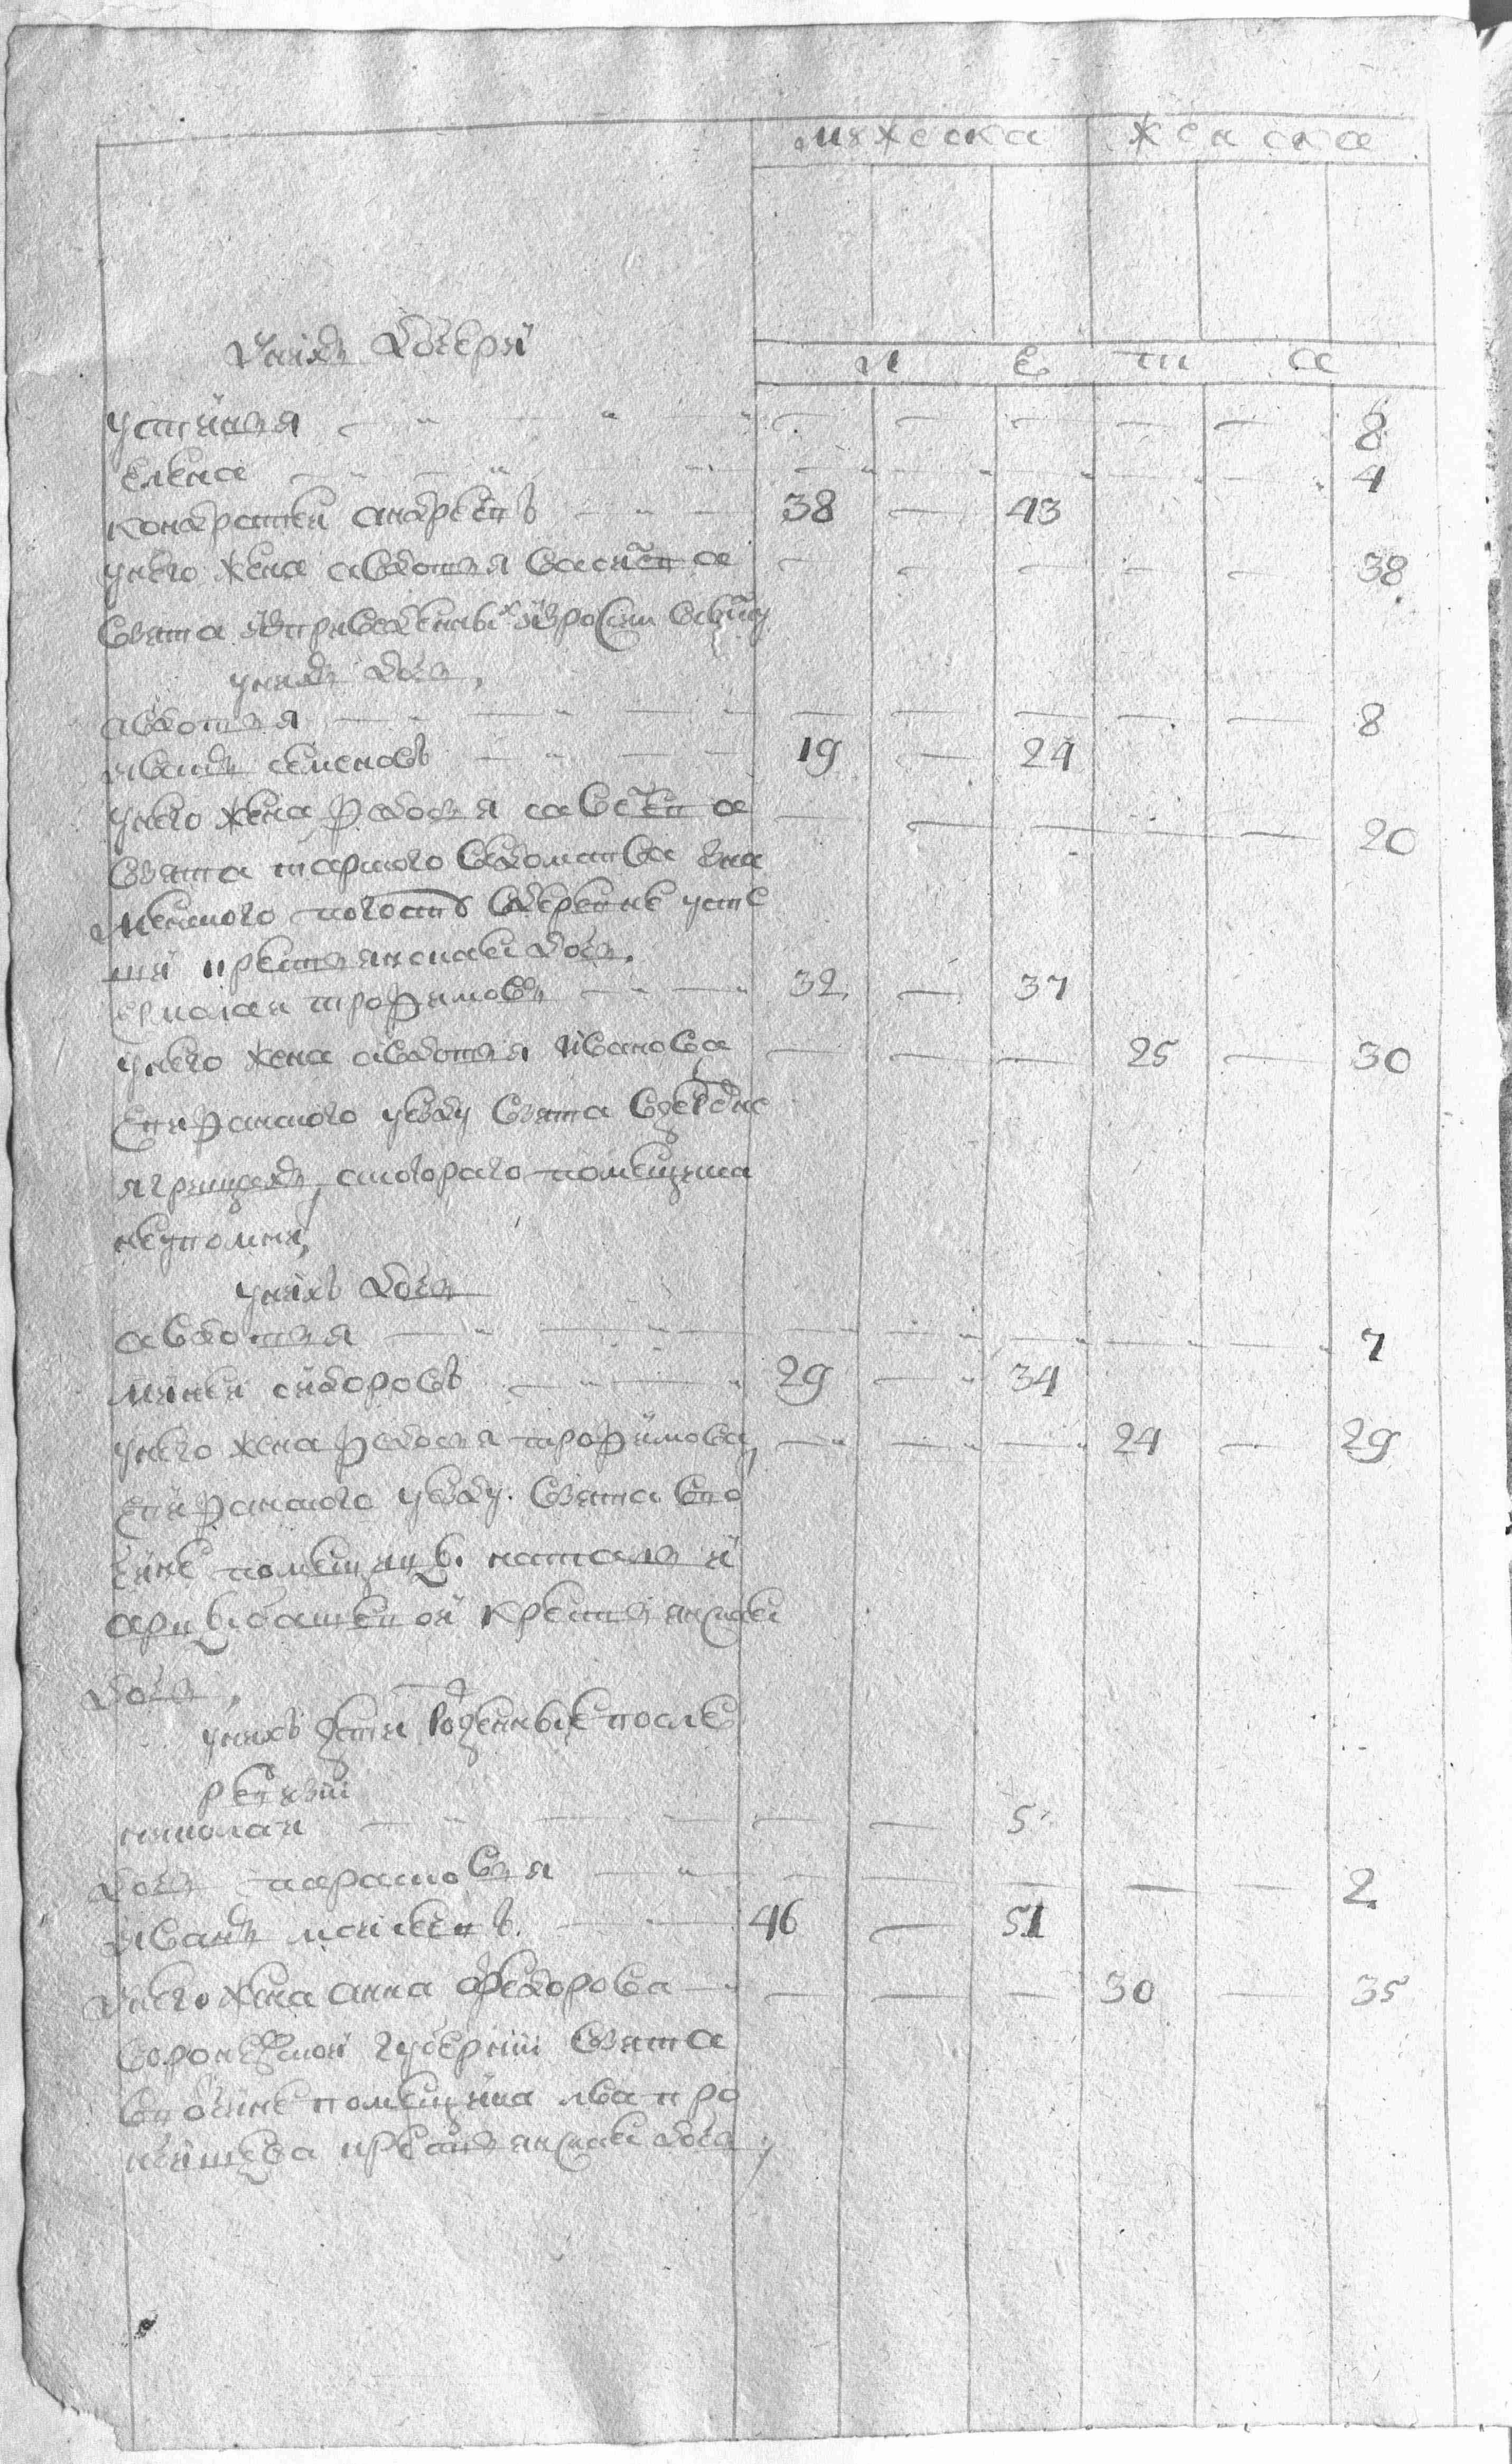 мужеска женска
л е т а
У них дочери
устинья — — — — — — 8
елена — — — — — — 4
кондратеи андреевъ — 38 — 43
у него жена авдотья васильева — — — — — 38
взята
у них дочь
авдотья — — — — — — 8
иванъ семеновъ — 19 — 24
у него жена федосья савельева — — — — — 20
взята ведомства
погоста в деревне усте
крестьянская дочь
ермолаи трофимовъ — 32 — 37
у него жена авдотья иванова — — — 25 — 30
Епифанского уезду взята в сельце
которого помещика
не упомнит
у нихъ дочь
авдотья — — — — — — 7
михеи сидоровъ — 29 — 34
у него жена федосья трофимова — — — 24 — 29
епифанского уезду взята в вот
чине помещицы натальи
крестьянская
дочь
у нихъ дети рожденные после
ревизии
николаи — — — 5
дочь парасковья — — — — — 2
иванъ моисеевъ — 46 — 51
У него жена анна федорова — — — 30 — 35
воронежской губернии взята
в вотчине помещика льва про
крестьянская дочь